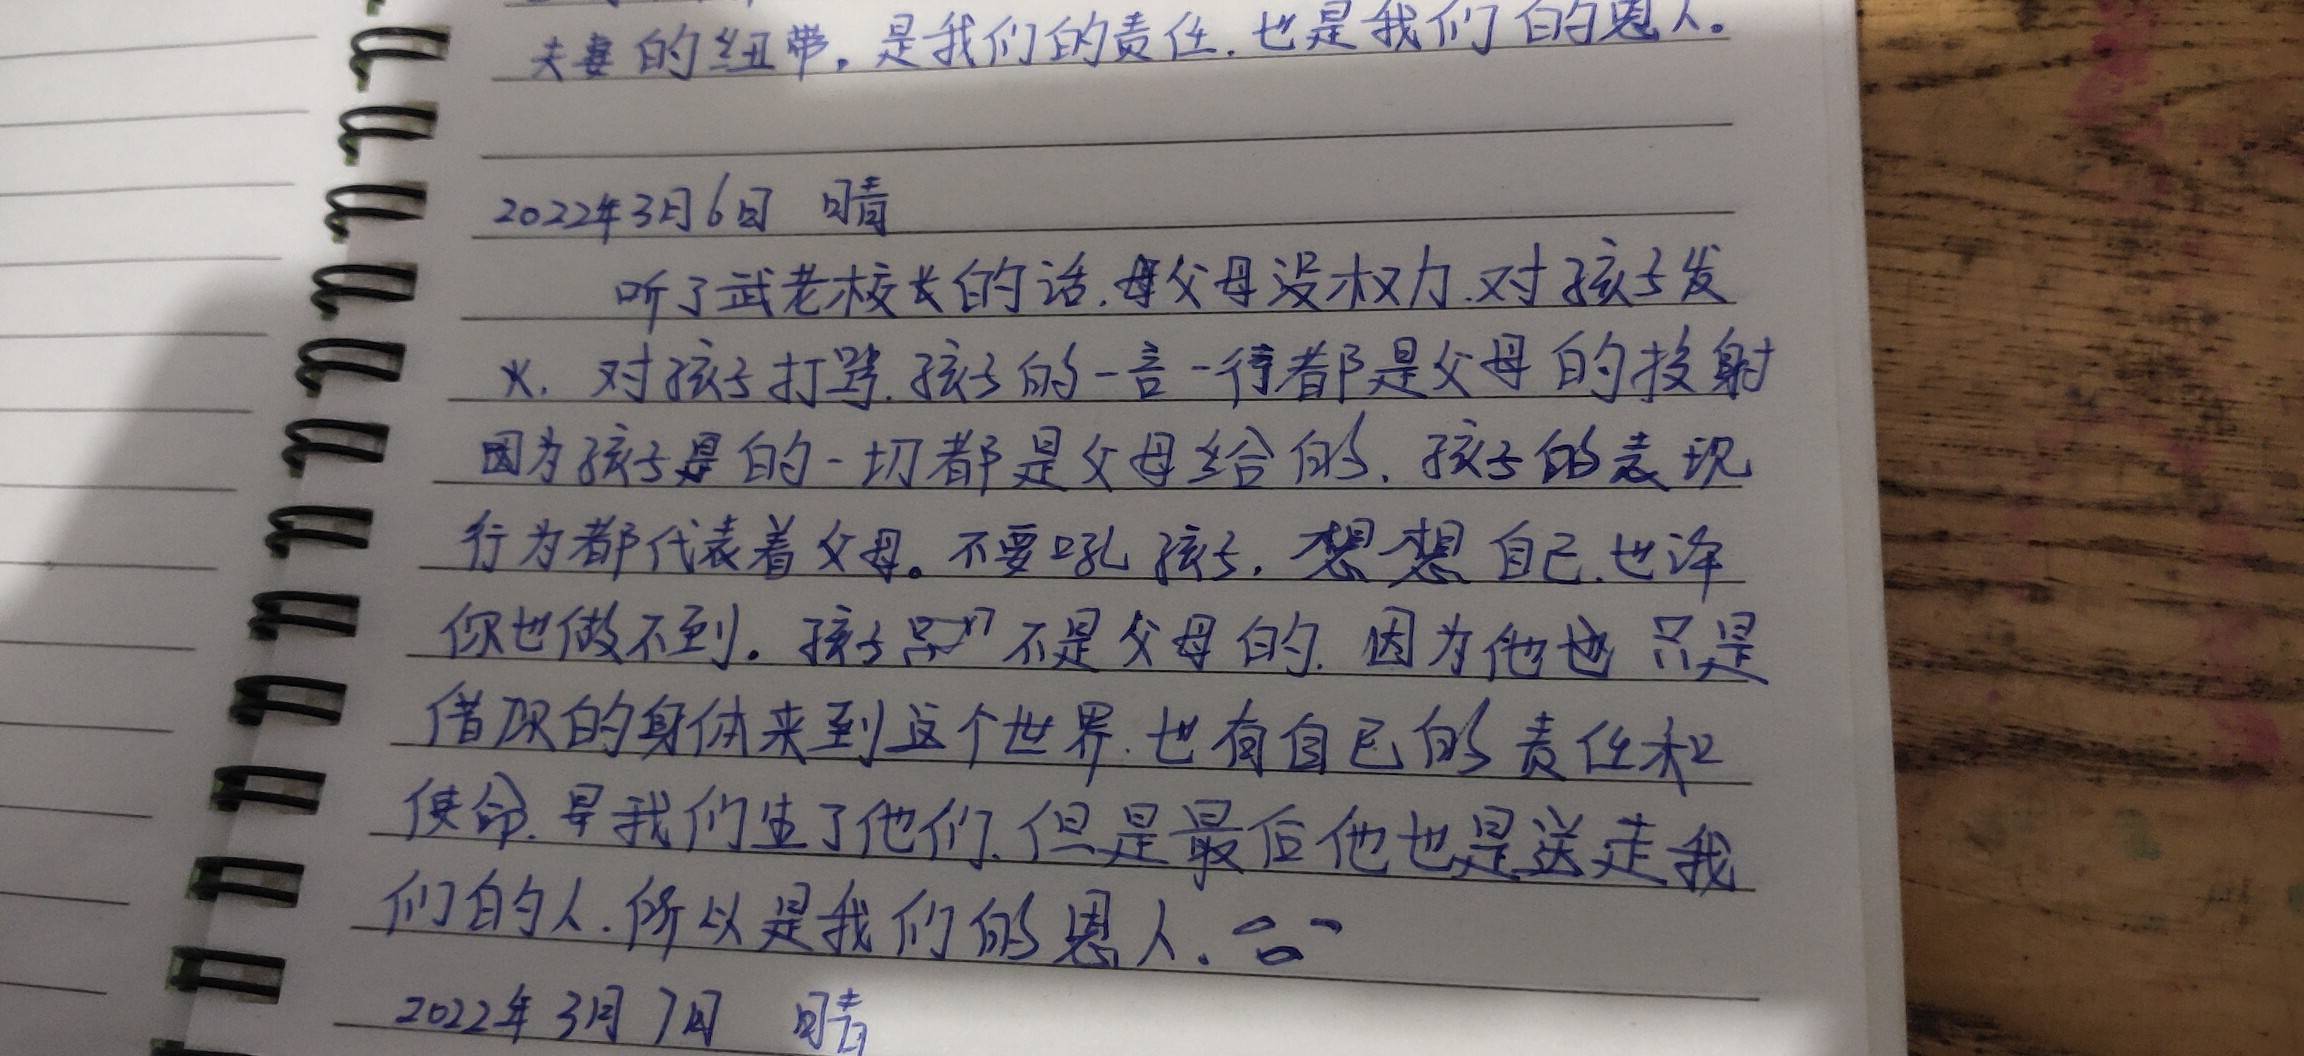 夫妻的纽带，是我们的责任.也是我们的恩人。
2022年3月6日 晴
听了武老校长的话.母父母没权力.对孩子发
火.对孩子打骂.孩子的一言一行都是父母的投射
因为孩子是的一切都是父母给的.孩子的表现
行为都代表着父母。不要吼孩子,想想自己.也许
你也做不到。孩子 不是父母的.因为他也只是
借 的身体来到这个世界.也有自己的责任和
使命.是我们生了他们.但是最后他也是送走我
们的人.所以是我们的恩人.
2022年3月7日 晴